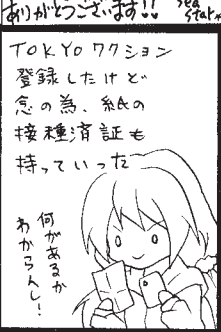 ありがとうございます!!
sea
star
TOKYOワクション
登録したけど
念の為、紙の
接種済証も
持っていった
何があるか
わからんし!